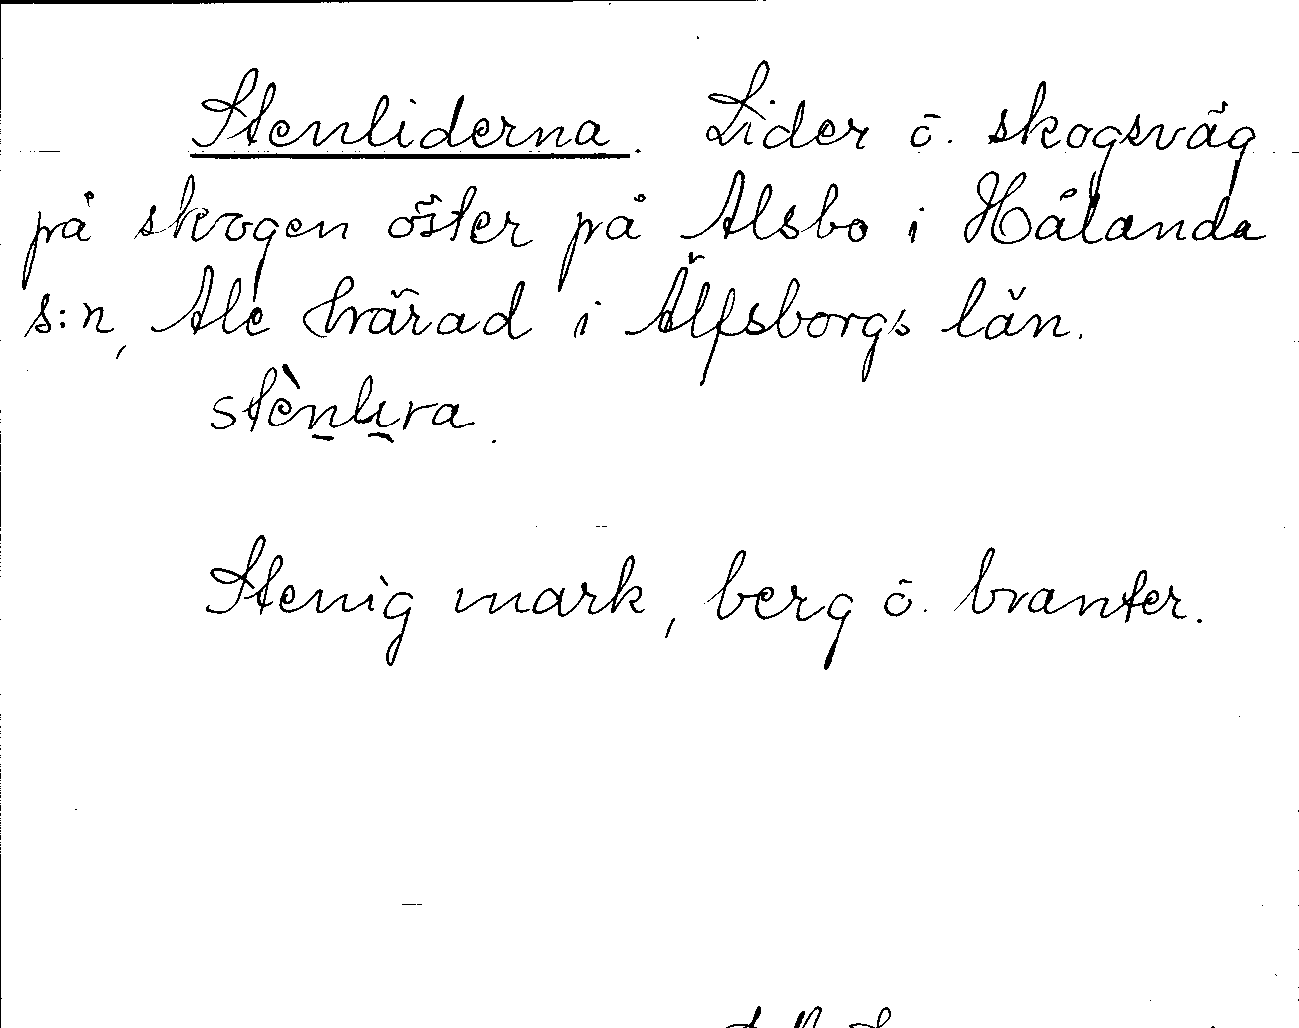 Stenliderna. Lider ö. skogsväg
på skogen öster på Alsbo i Hålanda
s:n, Ale härad i Älfsborgs län.
stènlıra.
Stenig mark, berg ö. branter.